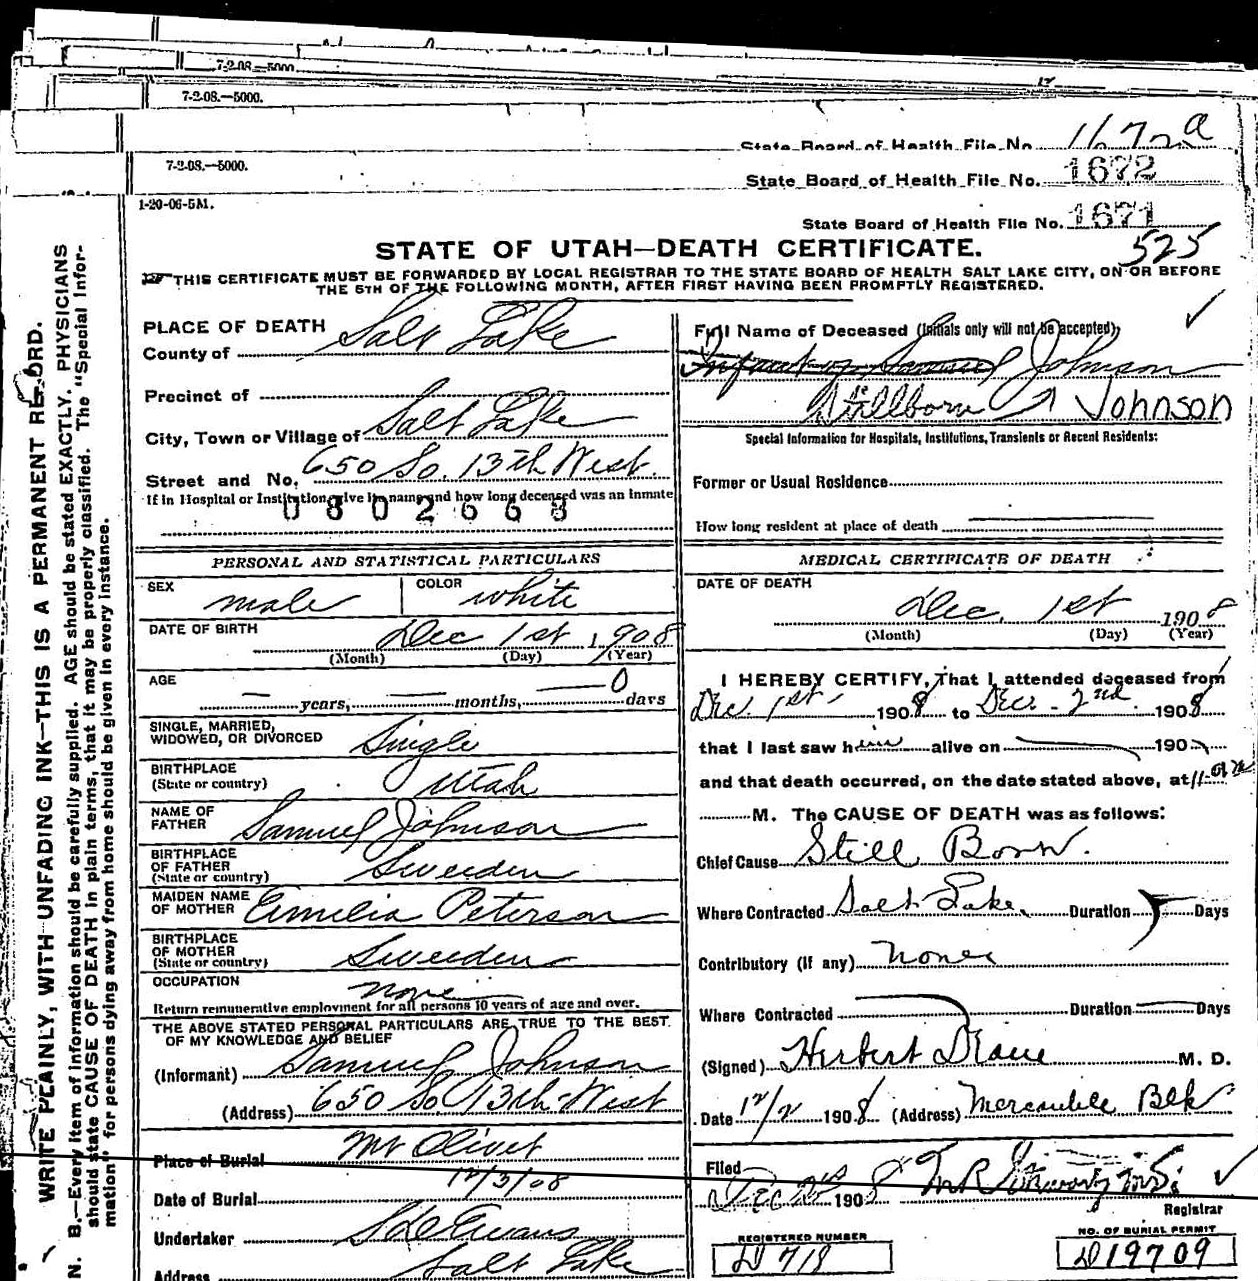 7-2-08.—5000.
7-2-08.—5000.
State Board of Health File No. 1672a
7-2-08.—5000.
State Board of Health File No. 1672
1-20-06-5M.
State Board of Health File No. 1671
STATE OF UTAH—DEATH CERTIFICATE. 525
THIS CERTIFICATE MUST BE FORWARDED BY LOCAL REGISTRAR TO THE STATE BOARD OF HEALTH SALT LAKE CITY, ON OR BEFORE
THE 5TH OF THE FOLLOWING MONTH, AFTER FIRST HAVING BEEN PROMPTLY REGISTERED.
WRITE PLAINLY, WITH UNFADING INK—THIS IS A PERMANENT RECORD.
N. B.—Every item of information should be carefully supplied. AGE should be stated EXACTLY. PHYSICIANS
should state CAUSE OF DEATH in plain terms, that it may be properly classified. The "Special Infor-
mation" for persons dying away from home should be given in every instance.
PLACE OF DEATH
County of Salt Lake
Precinct of
City, Town or Village of Salt Lake
Street and No. 650 So. 13th West
If in Hospital or Institution give its name and how long deceased was an inmate
0802663
PERSONAL AND STATISTICAL PARTICULARS
SEX male COLOR white
DATE OF BIRTH Dec 1st 1908
(Month) (Day) (Year)
AGE — years, — months, — 0 days
SINGLE, MARRIED,
WIDOWED, OR DIVORCED Single
BIRTHPLACE
(State or country) Utah
NAME OF
FATHER Samuel Johnson
BIRTHPLACE
OF FATHER
(State or country) Sweeden
MAIDEN NAME
OF MOTHER Emelia Peterson
BIRTHPLACE
OF MOTHER
(State or country) Sweeden
OCCUPATION none
Return remunerative employment for all persons 10 years of age and over.
THE ABOVE STATED PERSONAL PARTICULARS ARE TRUE TO THE BEST
OF MY KNOWLEDGE AND BELIEF
(Informant) Samuel Johnson
(Address) 650 So 13th West
Place of Burial Mt Olivet
Date of Burial 12/3/08
Undertaker Evans
Address Salt Lake
Full Name of Deceased (Initials only will not be accepted)
Infant of Samuel Johnson
Stillborn Johnson
Special Information for Hospitals, Institutions, Transients or Recent Residents:
Former or Usual Residence
How long resident at place of death
MEDICAL CERTIFICATE OF DEATH
DATE OF DEATH
Dec. 1st 1908
(Month) (Day) (Year)
I HEREBY CERTIFY, That I attended deceased from
Dec. 1st 1908 to Dec. 2nd 1908
that I last saw him alive on — 190
and that death occurred, on the date stated above, at 11
M. The CAUSE OF DEATH was as follows:
Chief Cause Still Born.
Where Contracted Salt Lake Duration Days
Contributory (if any) None
Where Contracted — Duration — Days
(Signed) Herbert M. D.
Date 12/2 1908 (Address) Mercantile Blk
Filed
Dec 2nd 1908
Registrar
REGISTERED NUMBER
D 718
NO. OF BURIAL PERMIT
D19709